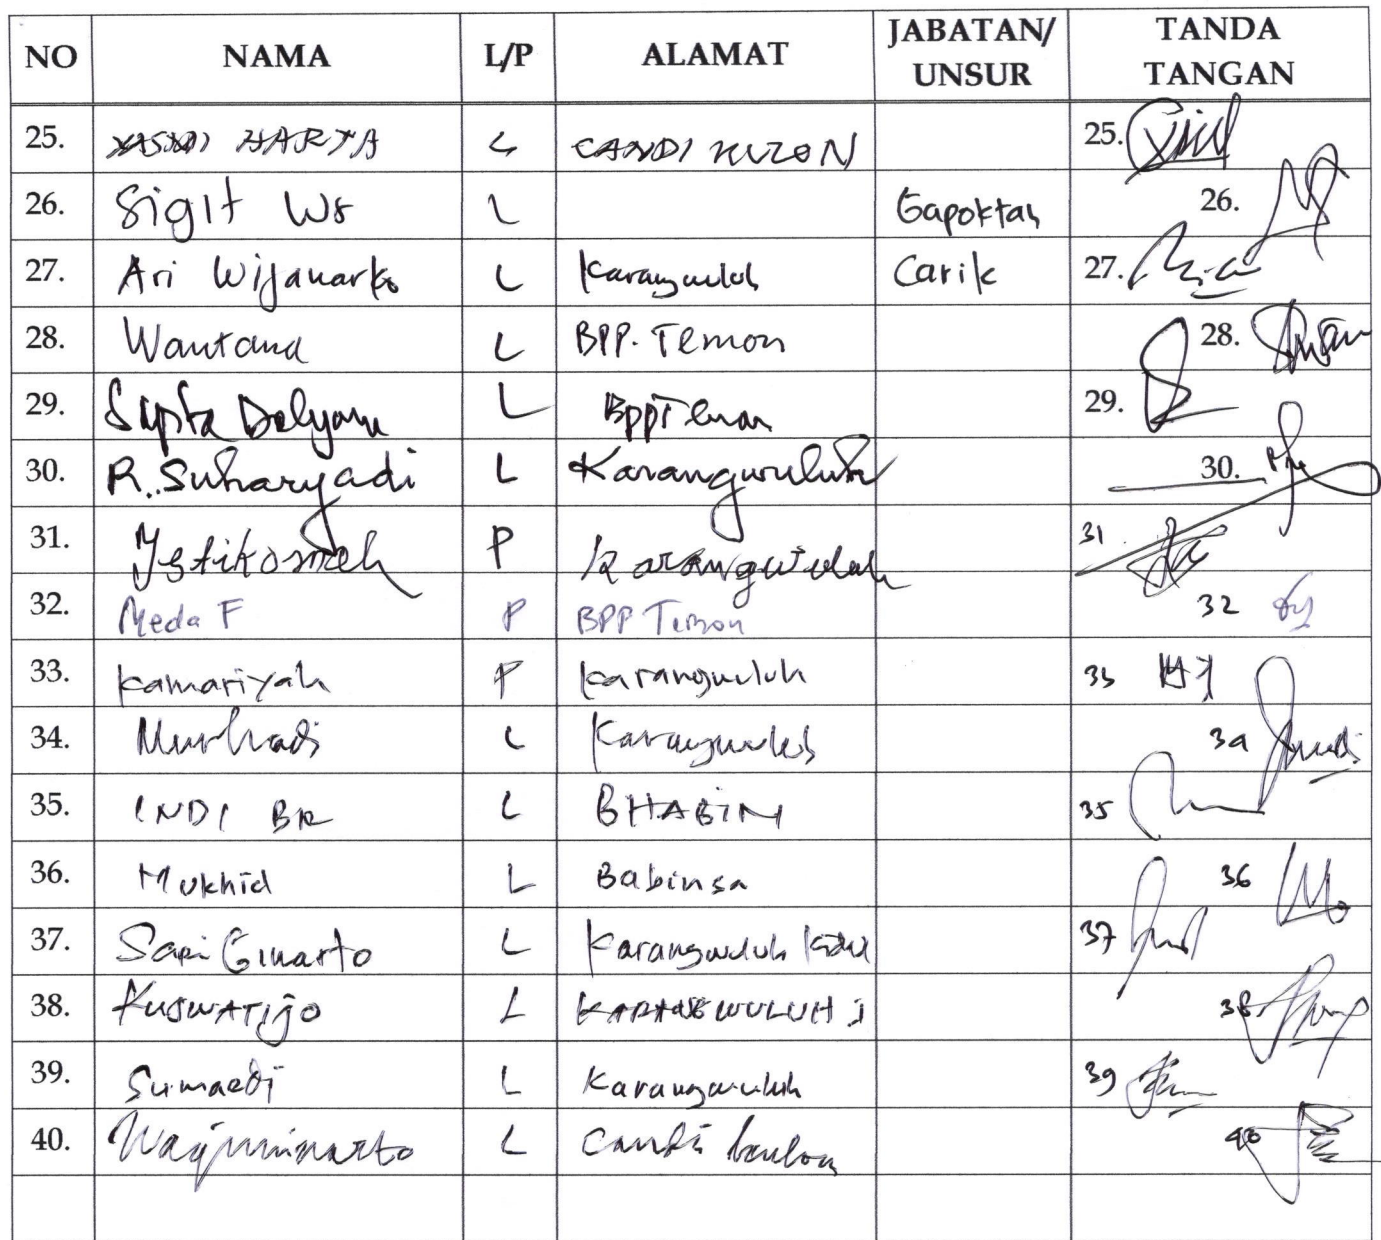 NO NAMA L/P ALAMAT JABATAN/ UNSUR TANDA TANGAN
25. HARYA L CANDI KULON 25.
26. Sigit Ws L Gapoktan 26.
27. Ari Wijanarko L Karangwuluh Carik 27.
28. Wantana L BPP. Temon 28.
29. Sapta Dalyana L BPP Temon 29.
30. R. Suharyadi L Karangwuluh 30.
31. Istikomah P Karangwuluh 31
32. Meda F P BPP Temon 32
33. Kamariyah P Karangwuluh 33
34. Murhadi L Karangwuluh 34
35. INDI BR L BHABIN 35
36. Mukhid L Babinsa 36
37. Sapi Ginarto L Karangwuluh Kidul 37
38. KUSWATIJO L KARANGWULUH 38
39. Sumaedi L Karangwuluh 39
40. Wagiminarto L Candi kulon 40